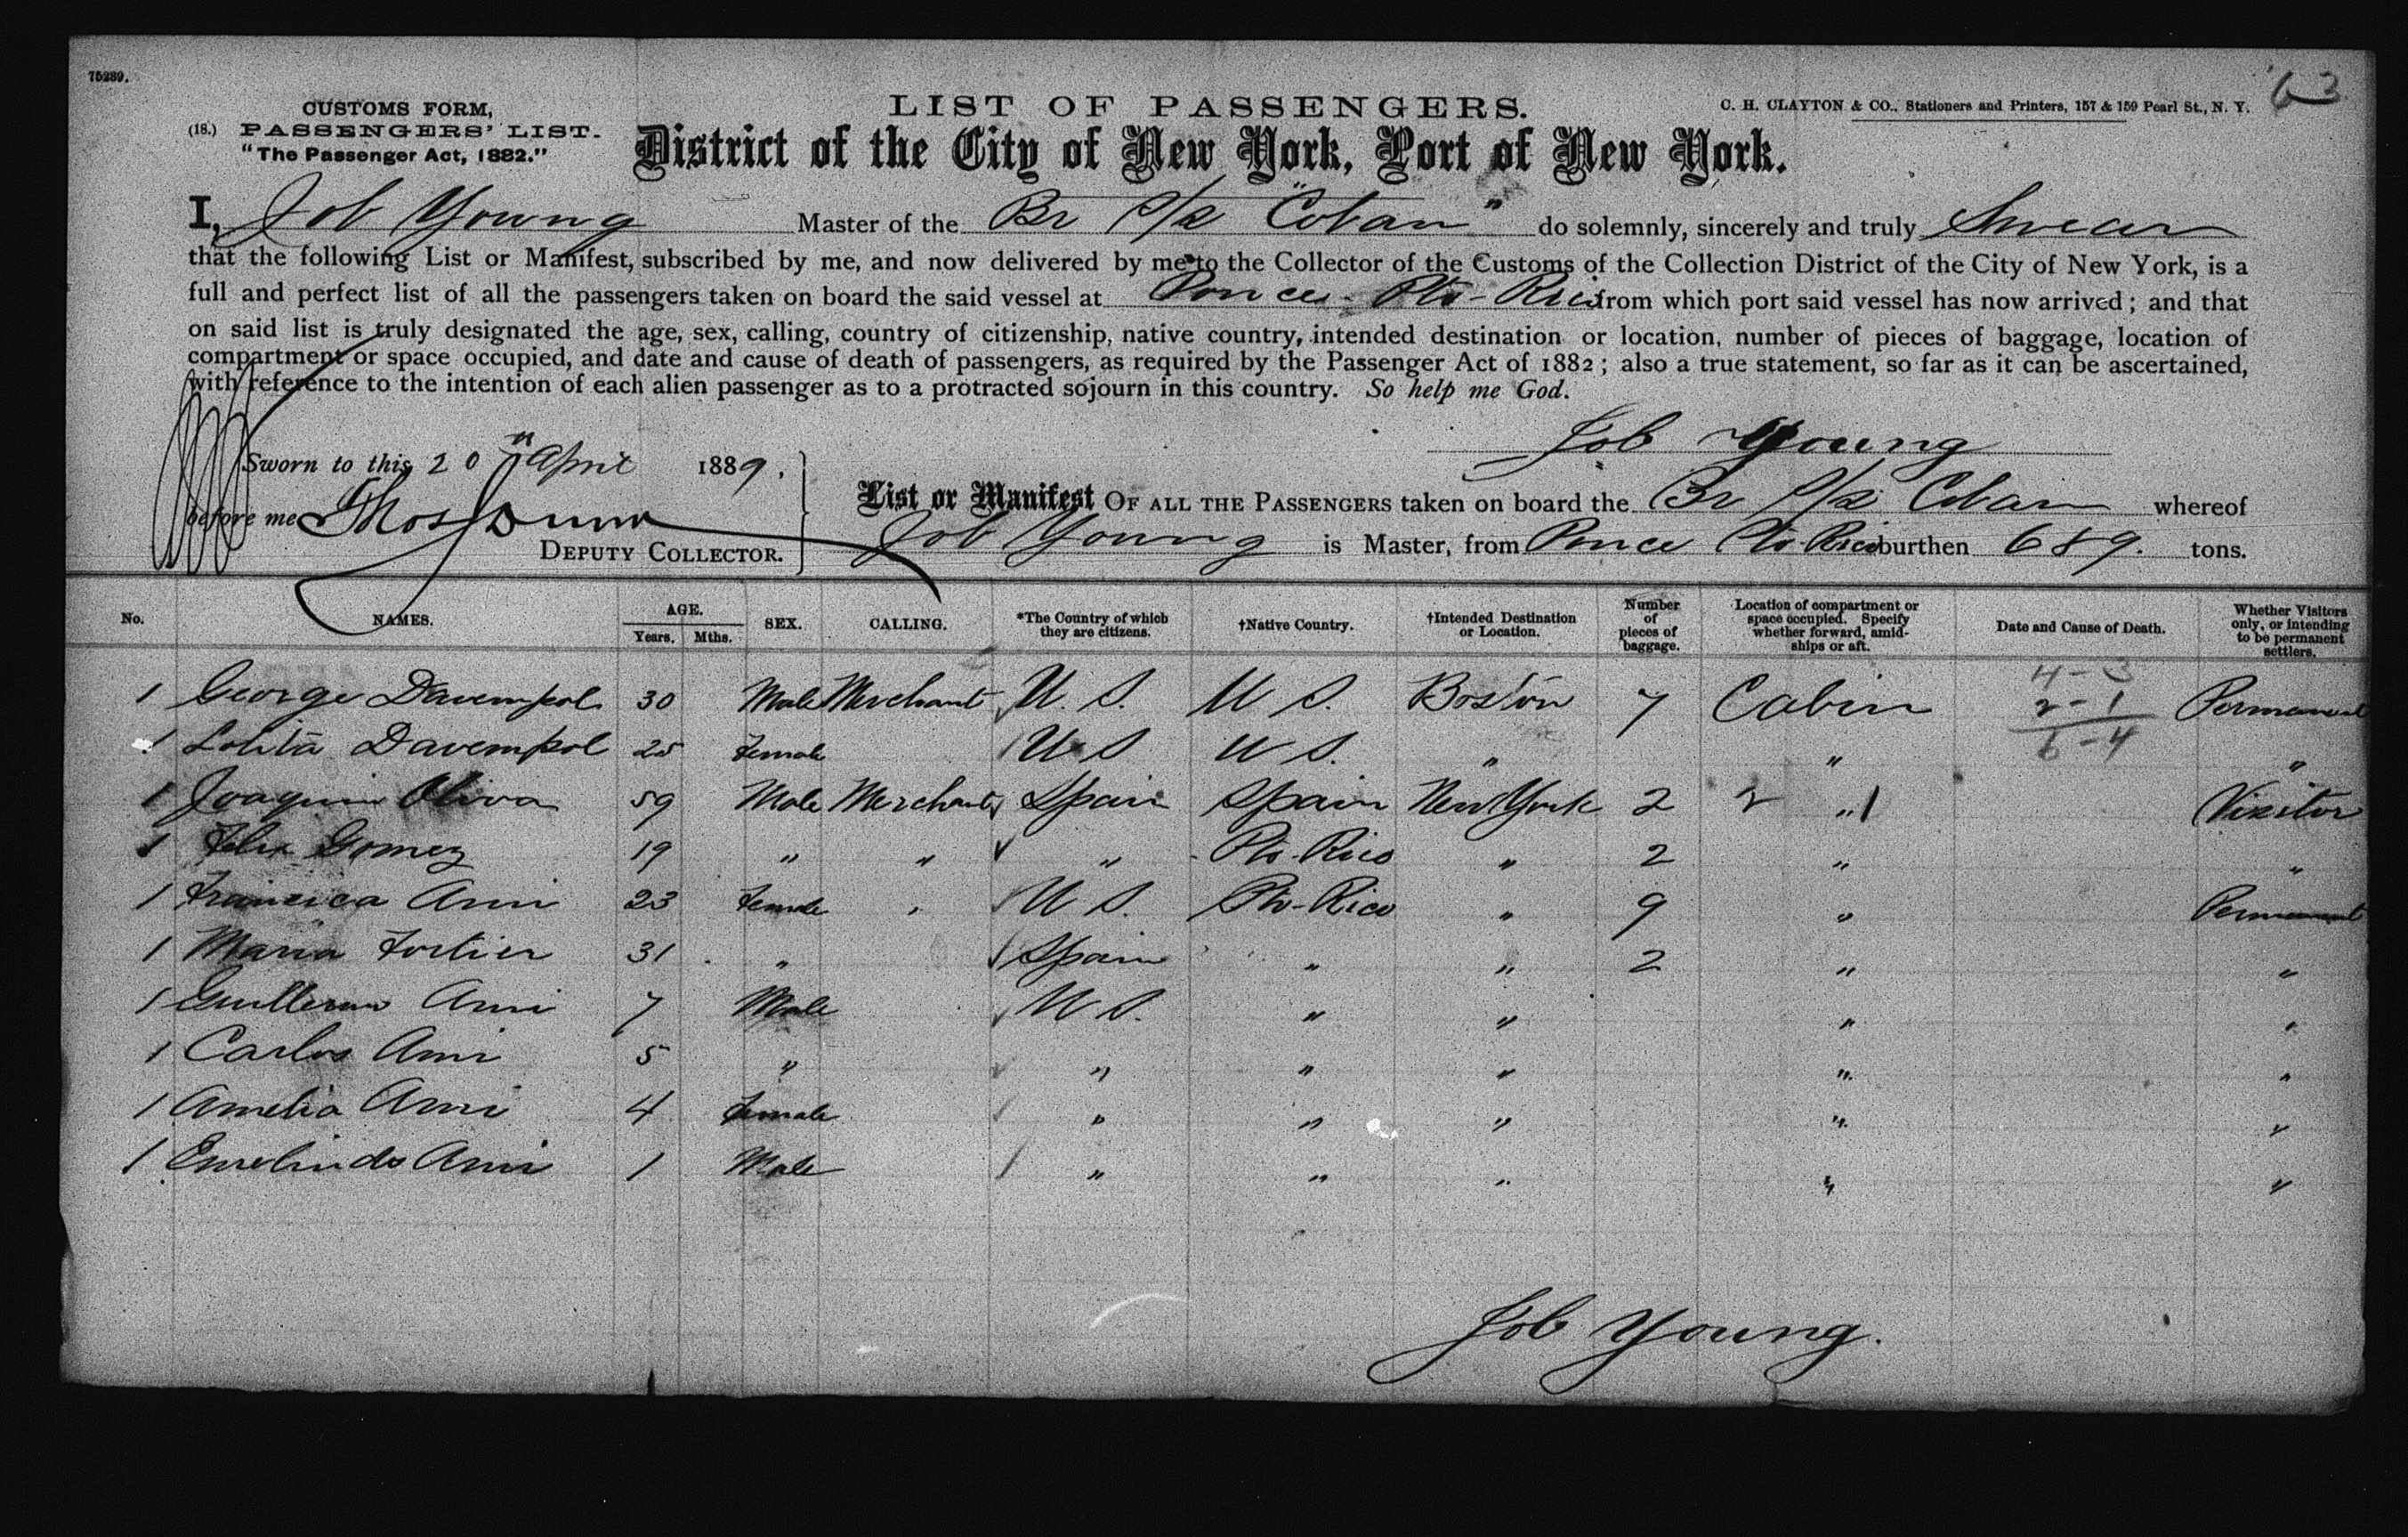 75289.
63
CUSTOMS FORM,
(18.) PASSENGERS' LIST.
"The Passenger Act, 1882."
LIST OF PASSENGERS.
C. H. CLAYTON & CO., Stationers and Printers, 157 & 159 Pearl St., N. Y.
District of the City of New York, Port of New York.
I, Job Young Master of the Br S/S "Coban" do solemnly, sincerely and truly Swear
that the following List or Manifest, subscribed by me, and now delivered by me to the Collector of the Customs of the Collection District of the City of New York, is a
full and perfect list of all the passengers taken on board the said vessel at Ponce - Pto - Rico from which port said vessel has now arrived; and that
on said list is truly designated the age, sex, calling, country of citizenship, native country, intended destination or location, number of pieces of baggage, location of
compartment or space occupied, and date and cause of death of passengers, as required by the Passenger Act of 1882; also a true statement, so far as it can be ascertained,
with reference to the intention of each alien passenger as to a protracted sojourn in this country. So help me God.
Job Young
Sworn to this 20" April 1889.
before me Thos Dunn
DEPUTY COLLECTOR.
List or Manifest OF ALL THE PASSENGERS taken on board the Br S/S Coban whereof
Job Young is Master, from Ponce Pto Rico burthen 689. tons.
No. NAMES. AGE. Years. Mths. SEX. CALLING. *The Country of which they are citizens. †Native Country. †Intended Destination or Location. Number of pieces of baggage. Location of compartment or space occupied. Specify whether forward, amidships or aft. Date and Cause of Death. Whether Visitors only, or intending to be permanent settlers.
1 George Davenpol 30 Male Merchant U. S. U S. Boston 7 Cabin 4-3 2-1 Permanent
1 Lolita Davenpol 25 Female U S U S. " " 6-4 "
1 Joaquin Oliva 59 Male Merchant Spain Spain New York 2 2 " 1 Visitor
1 Felix Gomez 19 " " " Pto-Rico " 2 " "
1 Francica Armi 23 Female " U S. Pto-Rico " 9 " Permanent
1 Maria Fortier 31 " Spain " " 2 " "
1 Guillermo Armi 7 Male U S. " " " "
1 Carlos Armi 5 " " " " " "
1 Amelia Armi 4 Female " " " " "
1 Emelindo Armi 1 Male " " " " "
Job Young.